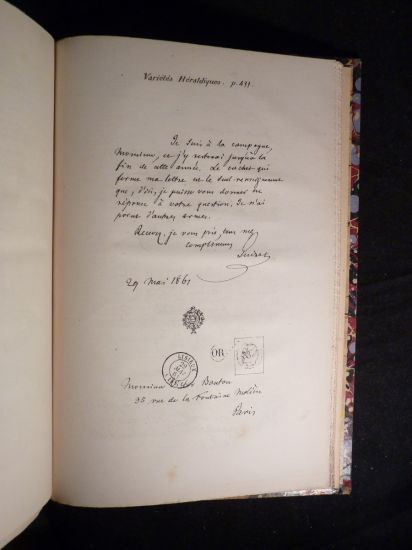 Variétés Héraldiques. p. 431.
Je suis à la campagne,
Monsieur, et j'y resterai jusqu'à la
fin de cette année. Le cachet qui
ferme ma lettre est le seul renseignement
que, d'ici, je puisse vous donner en
réponse à votre question. Je n'ai
point d'autres armes.
Recevez, je vous prie, tous mes
compliments
Guizot
29 Mai 1861
OR
LISIEUX
29
MAI
61
Monsieur Bouton
35 rue de la Fontaine Molière
Paris